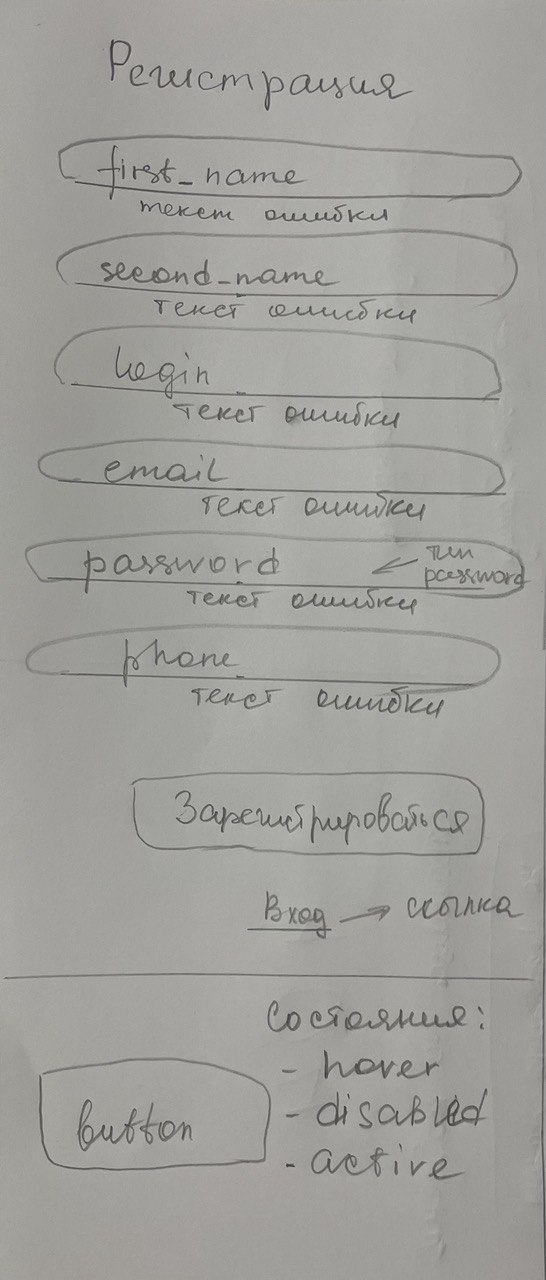 Регистрация
first_name
текст ошибки
second_name
текст ошибки
login
текст ошибки
email
текст ошибки
password ← тип password
текст ошибки
phone
текст ошибки
Зарегистрироваться
Вход → ссылка
Состояния:
- hover
- disabled
- active
button